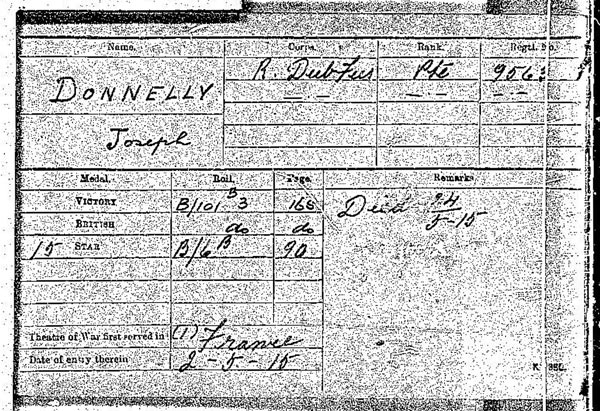 Name. Corps. Rank. Regtl. No.
DONNELLY R. Dub Fus Pte
Joseph
Medal. Roll. Page. Remarks
VICTORY B/101 B 3 Died 24/5-15
BRITISH do do
15 STAR B/6 B 90
Theatre of War first served in (1) France
Date of entry therein 2-5-15